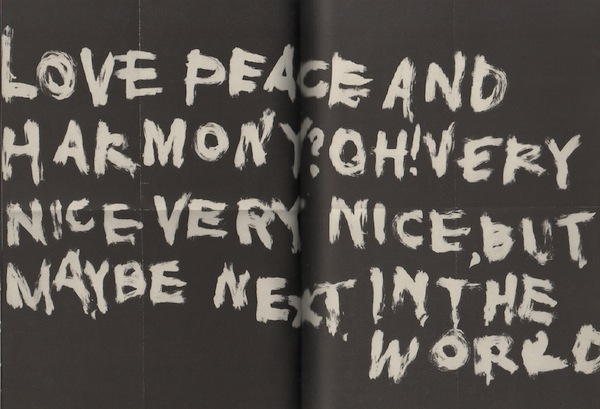 LOVE PEACE AND
HARMONY? OH! VERY
NICE VERY NICE, BUT
MAYBE NEXT. IN THE
WORLD